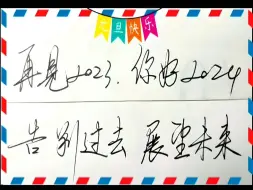 元旦快乐
再见2023.你好2024
告别过去 展望未来